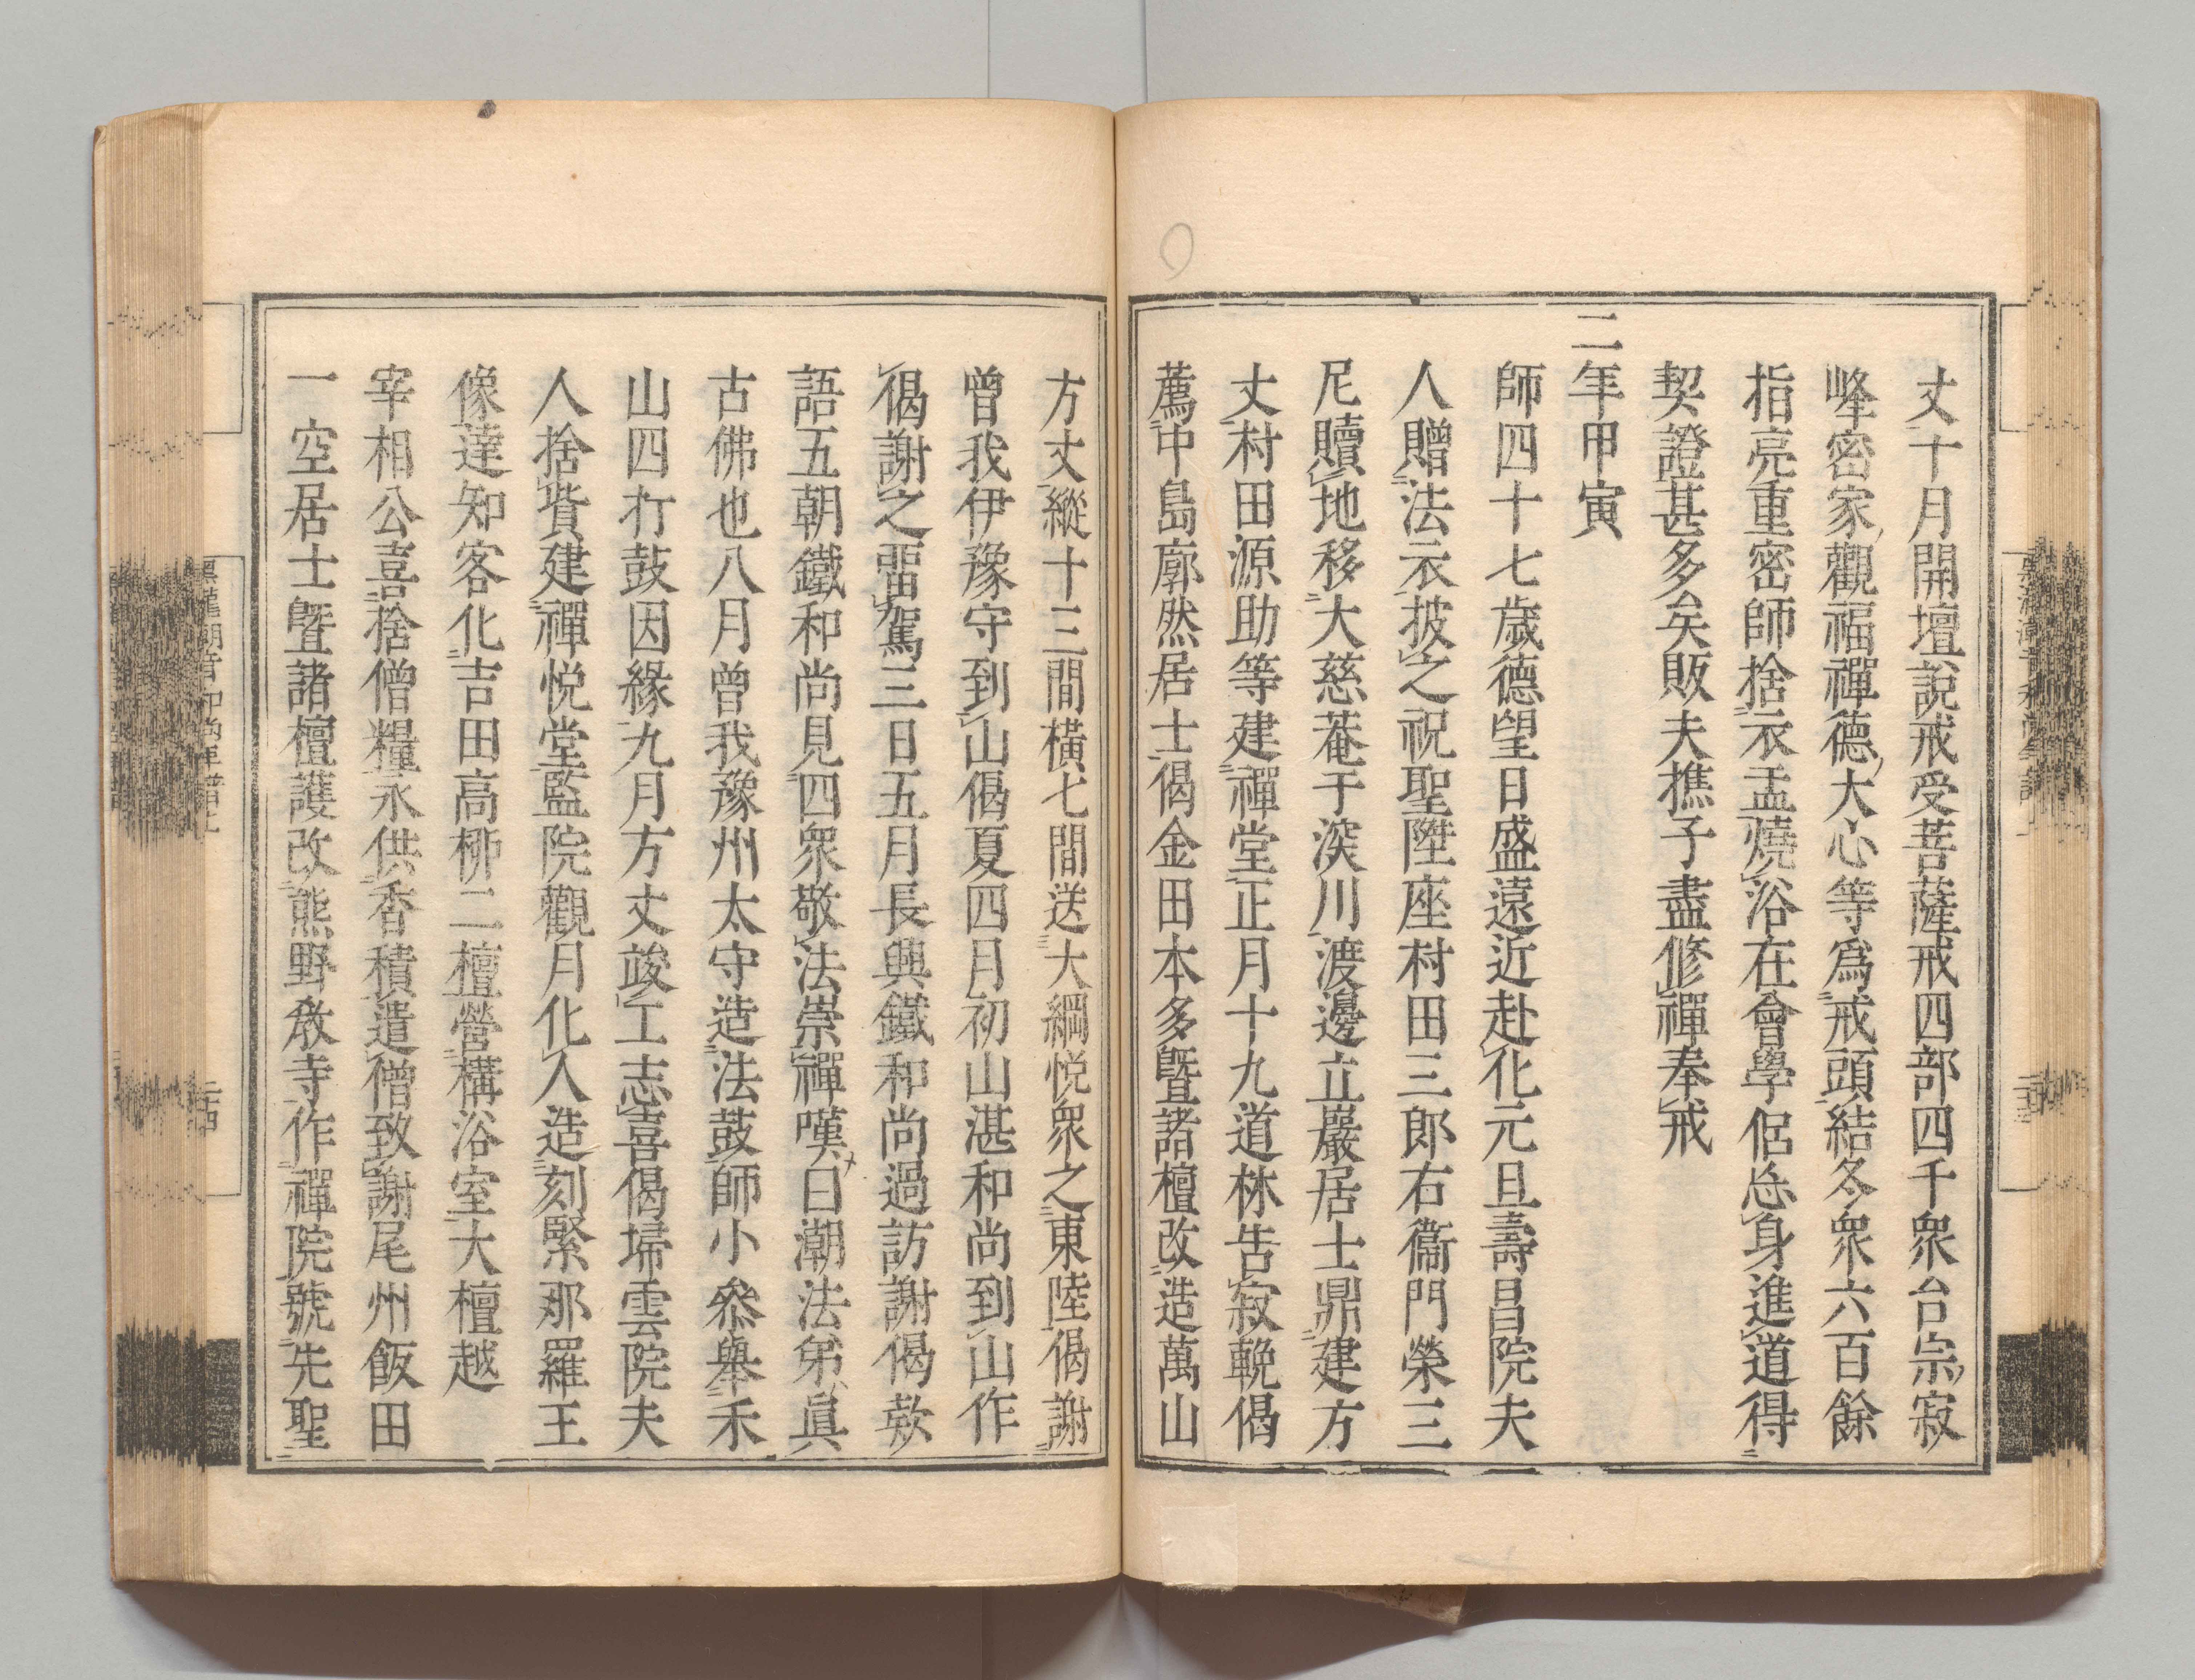 丈十月開壇說戒受菩薩戒四部四千衆台宗寂
峰密家觀福禪德大心等爲戒頭結冬衆六百餘
指亮重密師捨衣盂燒浴在會學侶忘身進道得
契證甚多矣販夫樵子盡修禪奉戒
二年甲寅
師四十七歲德望日盛遠近赴化元旦壽昌院夫
人贈法衣披之祝聖陞座村田三郎右衞門榮三
尼贖地移大慈菴于深川渡邊立巖居士鼎建方
丈村田源助等建禪堂正月十九道林告寂輓偈
薦中島廓然居士偈金田本多曁諸檀改造萬山
方丈縱十三間橫七間送大綱悅衆之東陸偈謝
曾我伊豫守到山偈夏四月初山湛和尚到山作
偈謝之畱駕三日五月長興鐵和尚過訪謝偈欵
語五朝鐵和尚見四衆敬法崇禪嘆曰潮法弟眞
古佛也八月曾我豫州太守造法鼓師小叅擧禾
山四打鼓因緣九月方丈竣工志喜偈埽雲院夫
人捨貲建禪悅堂監院觀月化人造刻緊那羅王
像達知客化吉田高柳二檀營構浴室大檀越
宰相公喜捨僧糧永供香積遣僧致謝尾州飯田
一空居士曁諸檀護改熊野敎寺作禪院號先聖
二十四